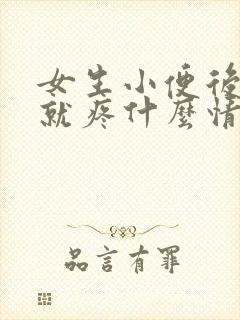 女生小便後
就疼什麼情
品言有罪